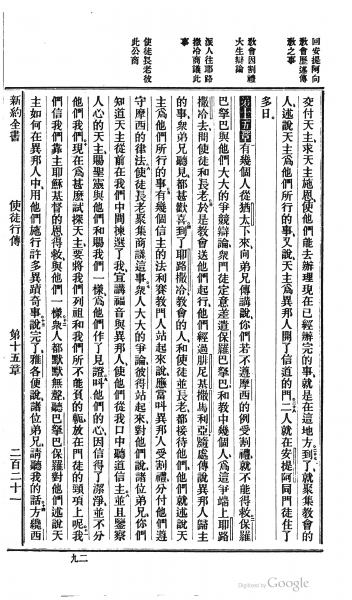 回安提阿向
教會歷述傳
教之事
教會因割禮
大生辯論
派人往耶路
撒冷商議此
事
使徒長老彼
此公商
交付天主求天主施恩使他們能去辦理現在已經辦完的事就是在這地方到了就聚集教會的
人述說天主爲他們所行的事又說天主爲異邦人開了信道的門二人就在安提阿同門徒住了
多日
第十五章有幾個人從猶太下來向弟兄傳講說你們若不遵摩西的例受割禮就不能得救保羅
巴拏巴與他們大大的爭競辯論衆門徒定意差遣保羅巴拏巴和教中幾個人爲這爭端上耶路
撒冷去問使徒和長老於是教會送他們起行他們經過腓尼基撒馬利亞隨處傳說異邦人歸主
的事衆弟兄聽見都甚歡喜到了耶路撒冷教會的人和使徒並長老都接待他們他們就述說天
主爲他們所行的事有幾個信主的法利賽教門人站起來說應當叫異邦人受割禮分付他們遵
守摩西的律法使徒長老聚集商議這事衆人大大的爭論彼得站起來對他們說諸位弟兄你們
知道天主從前在我們中間揀選了我宣講福音與異邦人使他們從我口中聽道信主並且鑒察
人心的天主賜聖靈與他們和賜我們一樣爲他們作了見證叫他們的心因信得了潔淨並不分
他們我們現在爲甚麼試探天主要將我們列祖和我們所不能負的軛放在門徒的頸項上呢我
們信我們靠主耶穌基督的恩得救與他們一樣衆人都默默無聲聽巴拏巴保羅對他們述說天
主如何在異邦人中用他們施行許多異蹟奇事說完了雅各便說諸位弟兄請聽我的話方纔西
新約全書 使徒行傳 第十五章 二百二十一
二九
Digitized by Google